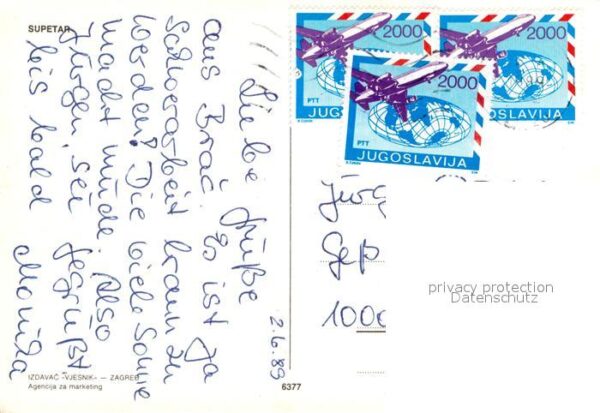 SUPETAR
Liebe Grüße
aus Brač. Es ist ja
Schwerarbeit braun zu
werden! Die viele Sonne
macht müde. Also
Jürgen, sei gegrüßt
bis bald Monika
2.6.89
IZDAVAČ »VJESNIK« — ZAGREB
Agencija za marketing
6377
2000
PTT
JUGOSLAVIJA
2000
JUGOSLAVIJA
2000
PTT
JUGOSLAVIJA
Jürg
Gep
1000
privacy protection
Datenschutz